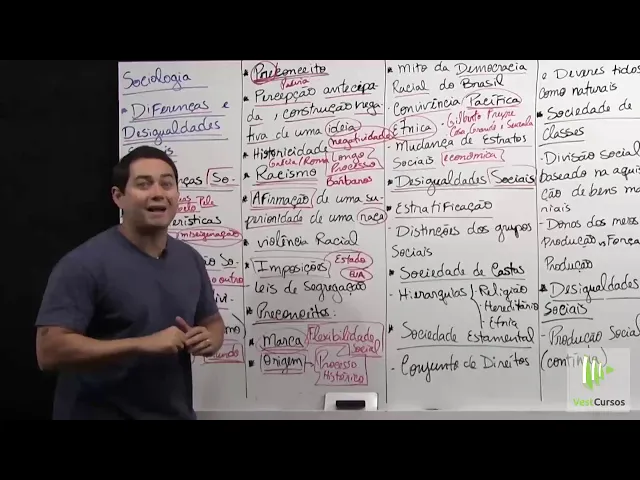 Sociologia
• Diferenças e
Desigualdades
So-
miscigenação
o outro
• Preconceito
Palvra
- Percepção antecipa-
da, construção nega-
tiva de uma ideia
negatividades
- Historicidade
Grécia/Roma
Longo
Processo
• Racismo
Bárbaros
- Afirmação de uma su-
perioridade de uma raça
- violência Racial
- Imposições
Estado
EUA
leis de Segregação
• Preconceitos:
- Marca
Flexibilidade
Social
- Origem
Processo
Histórico
• Mito da Democracia
Racial do Brasil
- Convivência Pacífica
Étnica
- Gilberto Freyre
Casa Grande e Senzala
- Mudança de Estratos
Sociais
econômica
• Desigualdades Sociais
• Estratificação
- Distinções dos grupos
Sociais
• Sociedade de Castas
- Hierarquias
Religião
Hereditário
Etnia
• Sociedade Estamental
- Conjunto de Direitos
e Deveres tidos
como naturais
• Sociedade de
Classes
- Divisão Social
baseado na aquisi
ção de bens ma
riais
- Donos dos meios
Produção e Força
Produção
• Desigualdades
Sociais
- Produção Social
VestCursos